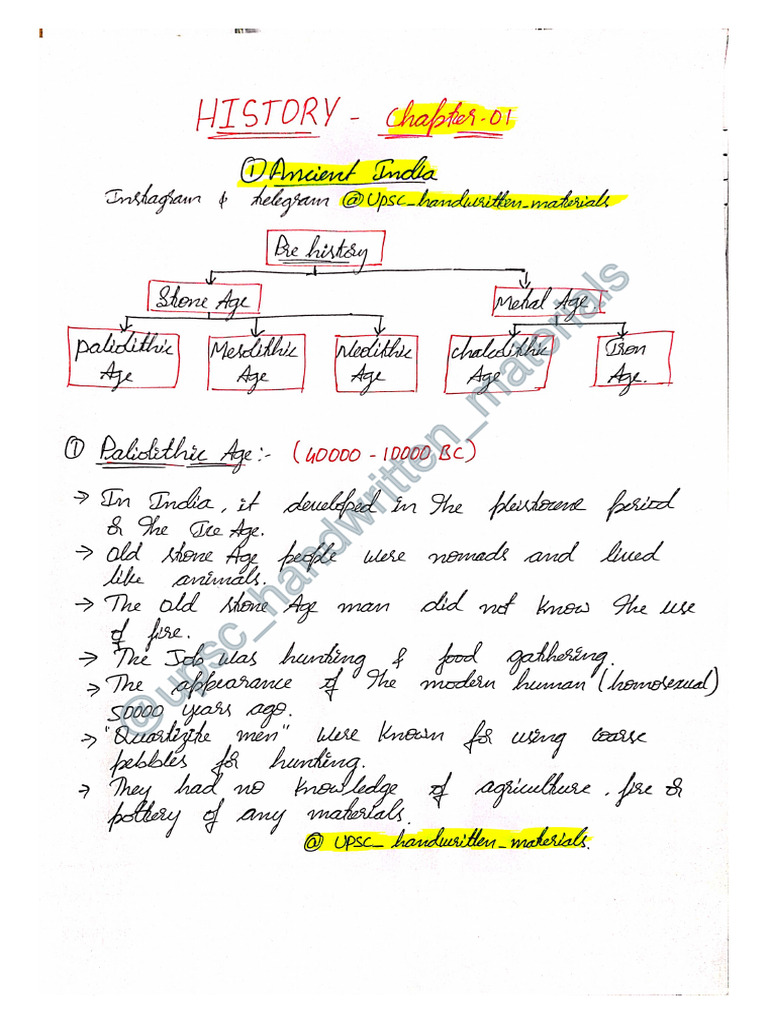 HISTORY - Chapter-01
① Ancient India
Instagram & telegram @Upsc_handwritten_materials
Pre history
Stone Age Metal Age.
Paliolithic Age Mesolithic Age Neolithic Age Chalcolithic Age Iron Age.
① Paliolithic Age:- (40000 - 10000 BC)
→ In India, it developed in the pleistocene period
or the Ice Age.
→ Old stone Age people were nomads and lived
like animals.
→ The old stone Age man did not know the use
of fire.
→ The Job was hunting & food gathering.
→ The appearance of the modern human (homosexual)
50000 years ago.
→ "Quartizite men" were known for using coarse
pebbles for hunting.
→ They had no knowledge of agriculture, fire or
pottery of any materials.
@ UPSC_ handwritten_materials.
@upsc_handwritten_materials